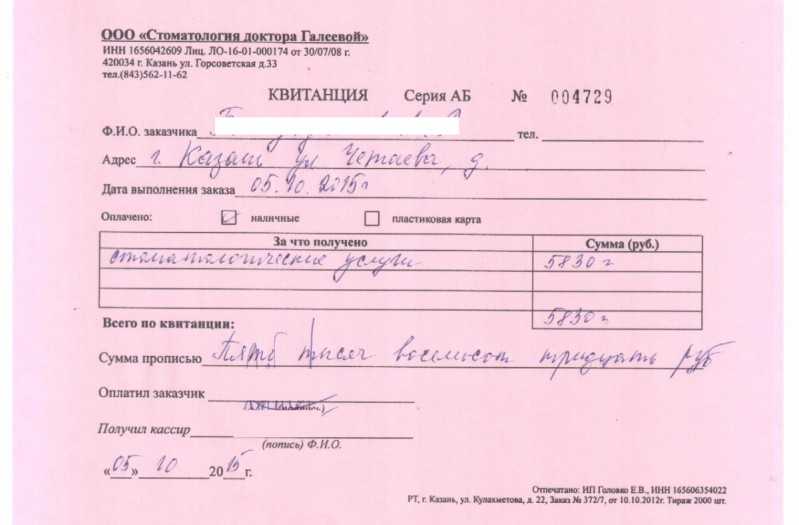 ООО «Стоматология доктора Галеевой»
ИНН 1656042609 Лиц. ЛО-16-01-000174 от 30/07/08 г.
420034 г. Казань ул. Горсоветская д.33
тел.(843)562-11-62
КВИТАНЦИЯ Серия АБ № 004729
Ф.И.О. заказчика тел.
Адрес г. Казань ул Четаева, д.
Дата выполнения заказа 05.10.2015г
Оплачено: наличные пластиковая карта
За что получено Сумма (руб.)
стоматологические услуги 5830 г
Всего по квитанции: 5830 г
Сумма прописью Пять тысяч восемьсот тридцать руб
Оплатил заказчик
Получил кассир
(попись) Ф.И.О.
«05» 10 2015г.
Отпечатано: ИП Головко Е.В., ИНН 165606354022
РТ, г. Казань, ул. Кулакметова, д. 22, Заказ № 372/7, от 10.10.2012г. Тираж 2000 шт.